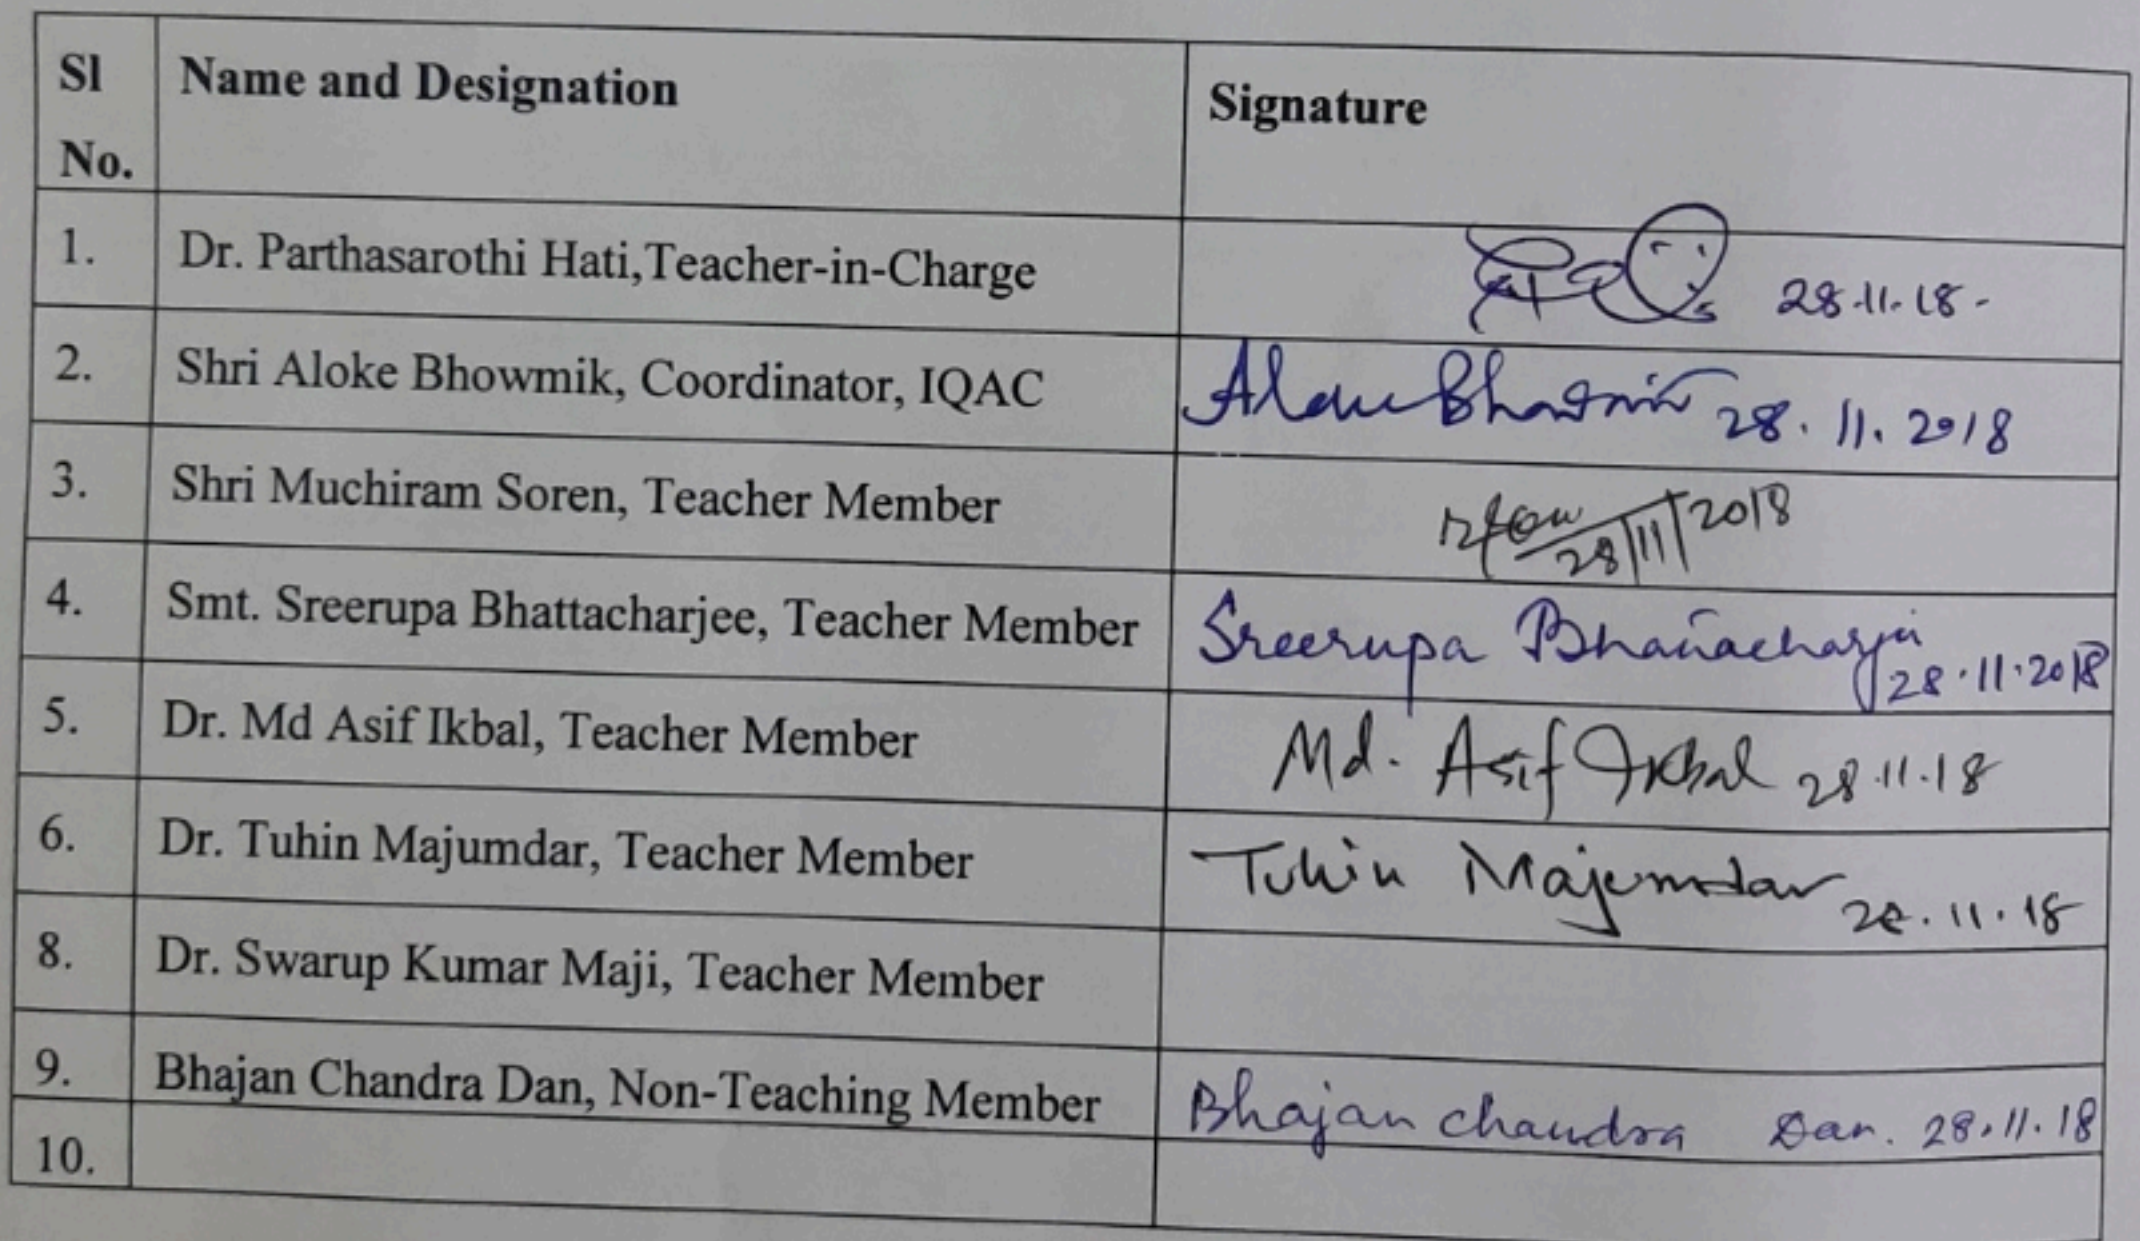 Sl No. Name and Designation Signature
1. Dr. Parthasarothi Hati,Teacher-in-Charge 28.11.18-
2. Shri Aloke Bhowmik, Coordinator, IQAC 28.11.2018
3. Shri Muchiram Soren, Teacher Member 28/11/2018
4. Smt. Sreerupa Bhattacharjee, Teacher Member Sreerupa Bhattacharjee 28.11.2018
5. Dr. Md Asif Ikbal, Teacher Member Md. Asif Ikbal 28.11.18
6. Dr. Tuhin Majumdar, Teacher Member Tuhin Majumdar 28.11.18
8. Dr. Swarup Kumar Maji, Teacher Member
9. Bhajan Chandra Dan, Non-Teaching Member Bhajan Chandra Dan. 28.11.18
10.